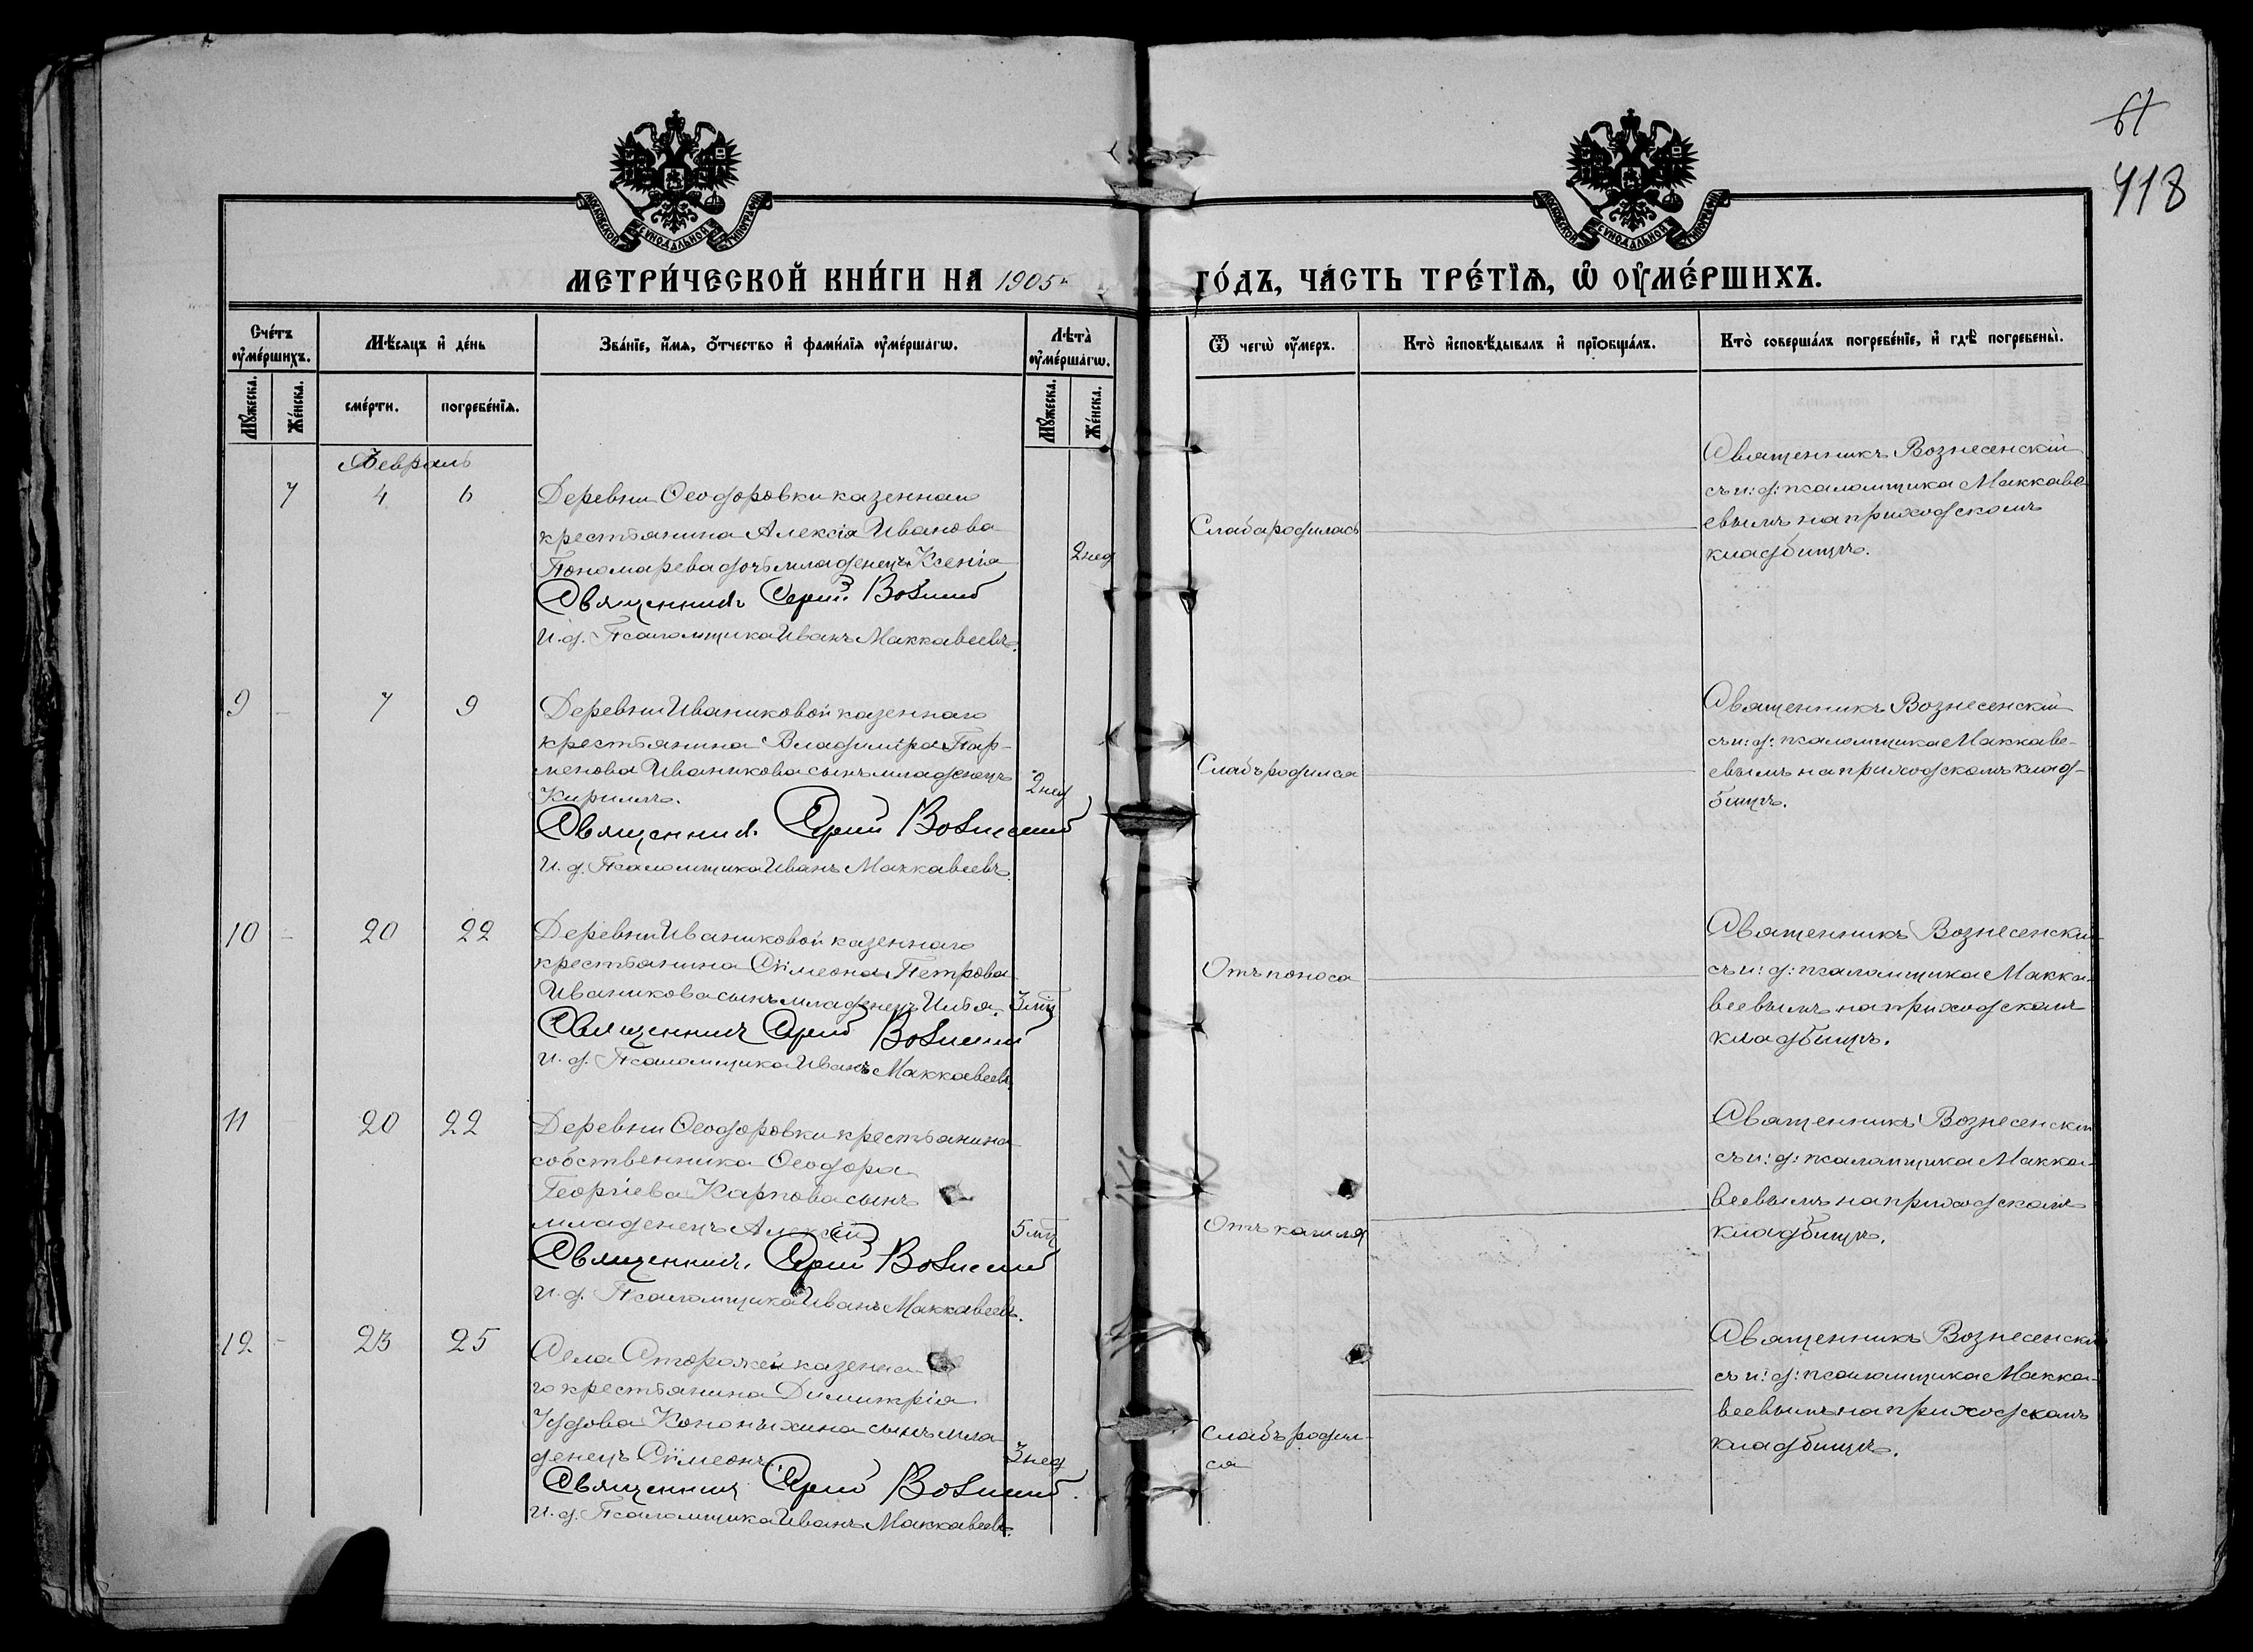 61
418
МОСКОВСКОЙ СУНОДАЛЬНОЙ ТИПОГРАФІИ
МОСКОВСКОЙ СУНОДАЛЬНОЙ ТИПОГРАФІИ
МЕТРИ́ЧЕСКОЙ КНИ́ГИ НА 1905й ГО́ДЪ, ЧА́СТЬ ТРЕ́ТЇѦ, Ѡ҆ ОУ҆МЕ́РШИХЪ.
Сче́тъ оу҆ме́ршихъ.
Мѣ́сяцъ и҆ де́нь
Зва́нїе, и҆́мѧ, ѻ҆́тчество и҆ фами́лїѧ оу҆ме́ршагѡ.
Лѣта̀ оу҆ме́ршагѡ.
Ѿ чегѡ̀ оу҆́меръ.
Кто̀ и҆сповѣ́дывалъ и҆ прїѡбща́лъ.
Кто̀ соверша́лъ погребе́нїе, и҆ гдѣ̀ погребены̀.
Мꙋ́жеска.
Же́нска.
сме́рти.
погребе́нїѧ.
Мꙋ́жеска.
Же́нска.
Февраль
7 4 6
Деревни Ѳеодоровки казеннаго
крестьянина Алексія Иванова
Пономарева дочь младенецъ Ксенія
2 нед
Священникъ Сергій Вознесенскій
И. д. Псаломщика Иванъ Маккавеевъ.
Слаба родилась
Священникъ Вознесенскій
съ и: д: псаломщика Маккаве
евымъ на приходскомъ
кладбищѣ.
9 - 7 9
Деревни Иваниковой казеннаго
крестьянина Владиміра Пар-
менова Иваникова сынъ младенецъ
Кириллъ.
2 нед
Священникъ Сергій Вознесенскій
И. д. Псаломщика Иванъ Маккавеевъ.
Слабъ родился
Священникъ Вознесенскій
съ и: д: псаломщика Маккаве-
евымъ на приходскомъ клад-
бищѣ.
10 - 20 22
Деревни Иваниковой казеннаго
крестьянина Сѵмеона Петрова
Иваникова сынъ младенецъ Илья.
3 мц
Священникъ Сергій Вознесенскій
И. д. Псаломщика Иванъ Маккавеевъ.
Отъ поноса
Священникъ Вознесенскій
съ и: д: псаломщика Макка-
веевымъ на приходскомъ
кладбищѣ.
11 20 22
Деревни Ѳеодоровки крестьянина
собственника Ѳеодора
Георгіева Карпова сынъ
младенецъ Алексій
5 мц
Священникъ Сергій Вознесенскій
И. д. Псаломщика Иванъ Маккавеевъ.
Отъ кашля
Священникъ Вознесенскій
съ и: д: псаломщика Макка-
веевымъ на приходскомъ
кладбищѣ.
12 - 23 25
Села Сторожей казенна
го крестьянина Димитрія
Іудова Кононыхина сынъ мла
денецъ Сѵмеонъ.
3 нед
Священникъ Сергій Вознесенскій
И. д. Псаломщика Иванъ Маккавеевъ.
Слабъ родил-
ся
Священникъ Вознесенскій
съ и: д: псаломщика Макка-
веевымъ на приходскомъ
кладбищѣ.